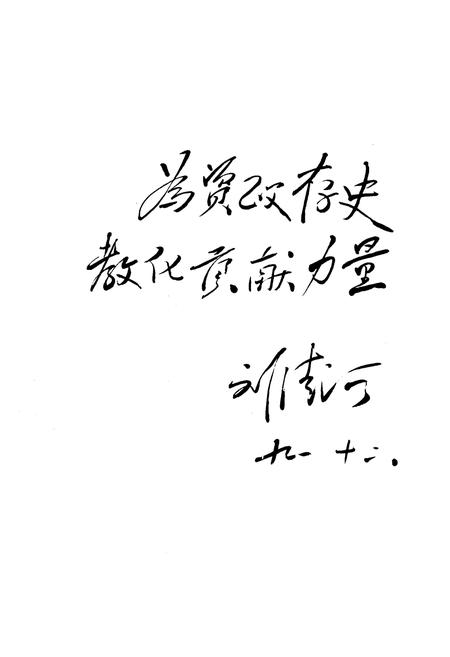 为资政存史
教化贡献力量
刘
九一 十二.